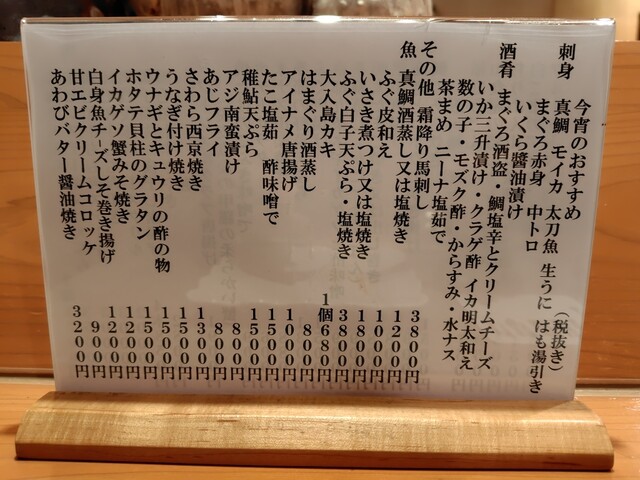 今宵のおすすめ (税抜き)
刺身 真鯛 モイカ 太刀魚 生うに はも湯引き
まぐろ赤身 中トロ
いくら醤油漬け
酒肴 まぐろ酒盗・鯛塩辛とクリームチーズ
いか三升漬け・クラゲ酢 イカ明太和え
数の子・モズク酢・からすみ・水ナス
茶まめ ニーナ塩茹で
その他 霜降り馬刺し 3800円
魚 真鯛酒蒸し又は塩焼き 1200円
ふぐ皮和え 1000円
いさき煮つけ又は塩焼き 1800円
ふぐ白子天ぷら・塩焼き 3800円
大入島カキ 1個680円
はまぐり酒蒸し 1500円
アイナメ唐揚げ 1000円
たこ塩茹 酢味噌で 1500円
稚鮎天ぷら 1500円
アジ南蛮漬け 800円
あじフライ 800円
さわら西京焼き 1300円
うなぎ付け焼き 1500円
ウナギとキュウリの酢の物 1500円
ホタテ貝柱のグラタン 1500円
イカゲソ蟹みそ焼き 1200円
白身魚チーズしそ巻き揚げ 1200円
甘エビクリームコロッケ 900円
あわびバター醤油焼き 3200円